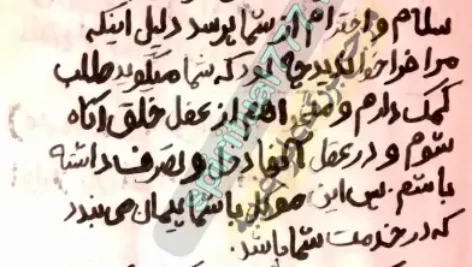 سلام و احترام از شما پرسد دلیل اینکه
مرا فرا خواندید چه بود که شما میگوید طلب
کمک دارم و می خواهم از عقل خلق آگاه
شوم و در عقل آنها دخل و تصرف داشته
باشم. پس این موکل با شما پیمان می بندد
که در خدمت شما باشد.
spiritual777